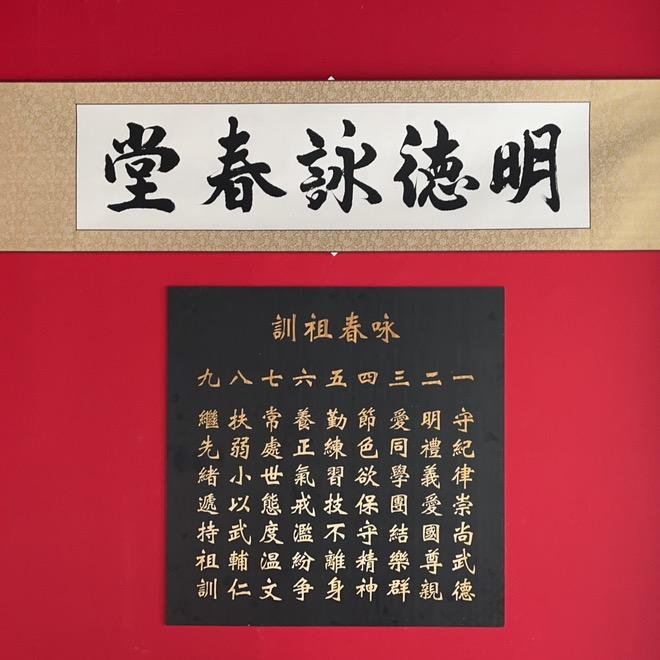 明德詠春堂
咏春祖訓
一 守紀律崇尚武德
二 明禮義愛國尊親
三 愛同學團結樂群
四 節色欲保守精神
五 勤練習技不離身
六 養正氣戒濫紛争
七 常處世態度温文
八 扶弱小以武輔仁
九 繼先緒遞持祖訓